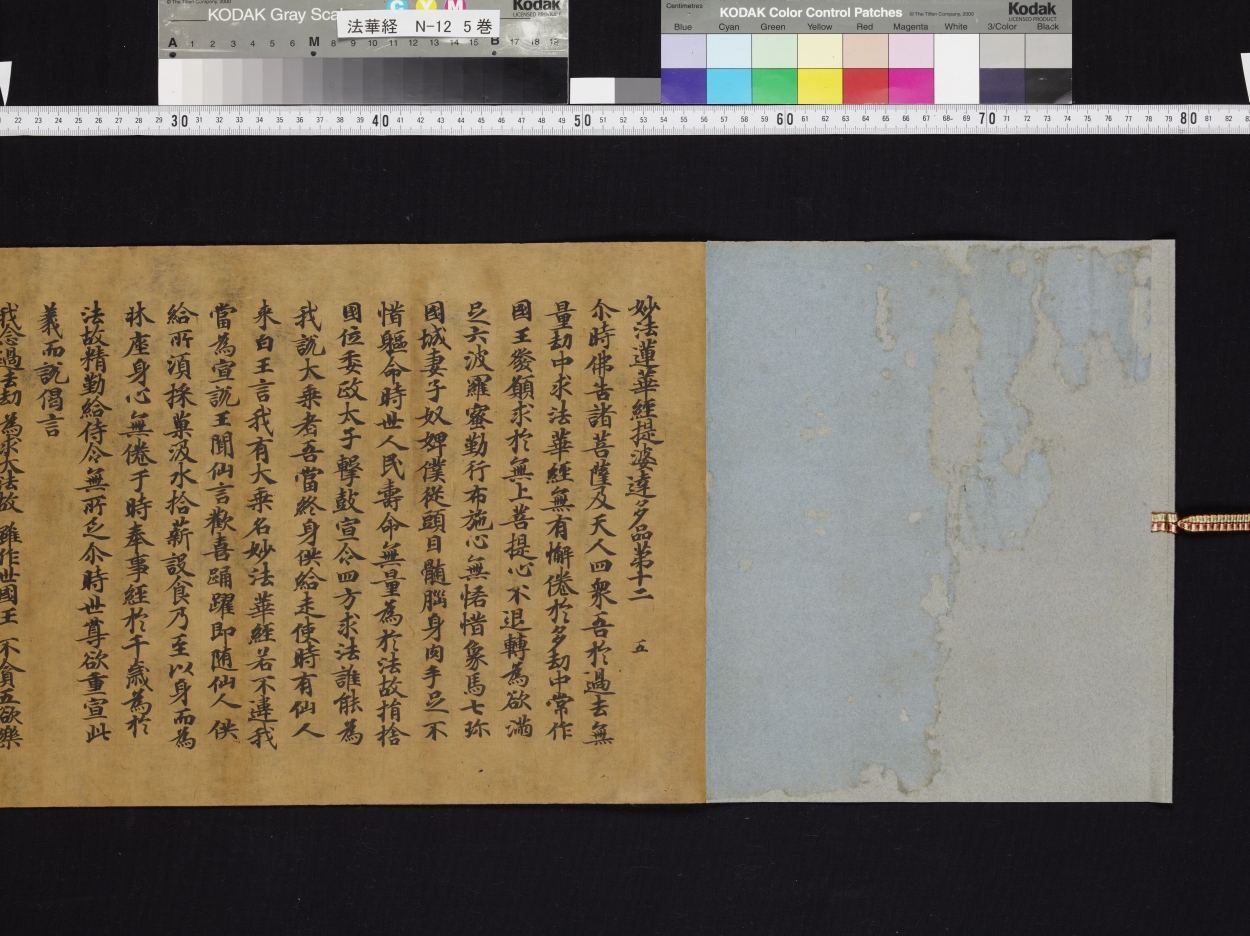 KODAK Gray Scale
© The Tiffen Company, 2000
Kodak
LICENSED PRODUCT
C Y M
法華経 N-12 5巻
A 1 2 3 4 5 6 M 8 9 10 11 12 13 14 15 B 17 18 19
Centimetres
KODAK Color Control Patches
© The Tiffen Company, 2000
Kodak
LICENSED PRODUCT
Blue Cyan Green Yellow Red Magenta White 3/Color Black
22 23 24 25 26 27 28 29 30 31 32 33 34 35 36 37 38 39 40 41 42 43 44 45 46 47 48 49 50 51 52 53 54 55 56 57 58 59 60 61 62 63 64 65 66 67 68 69 70 71 72 73 74 75 76 77 78 79 80 81 82
妙法蓮華經提婆達多品第十二 五
尒時佛告諸菩薩及天人四衆吾於過去無
量劫中求法華經無有懈倦於多劫中常作
國王發願求於無上菩提心不退轉為欲滿
足六波羅蜜勤行布施心無悋惜象馬七珎
國城妻子奴婢僕從頭目髓腦身肉手足不
惜軀命時世人民壽命無量為於法故捐捨
國位委政太子擊鼓宣令四方求法誰能為
我說大乘者吾當終身供給走使時有仙人
来白王言我有大乘名妙法華經若不違我
當為宣說王聞仙言歡喜踊躍即随仙人供
給所湏採菓汲水拾薪設食乃至以身而為
牀座身心無倦于時奉事經於千歲為於
法故精勤給侍令無所乏尒時世尊欲重宣此
義而說偈言
我念過去劫 為求大法故 雖作世國王 不貪五欲樂